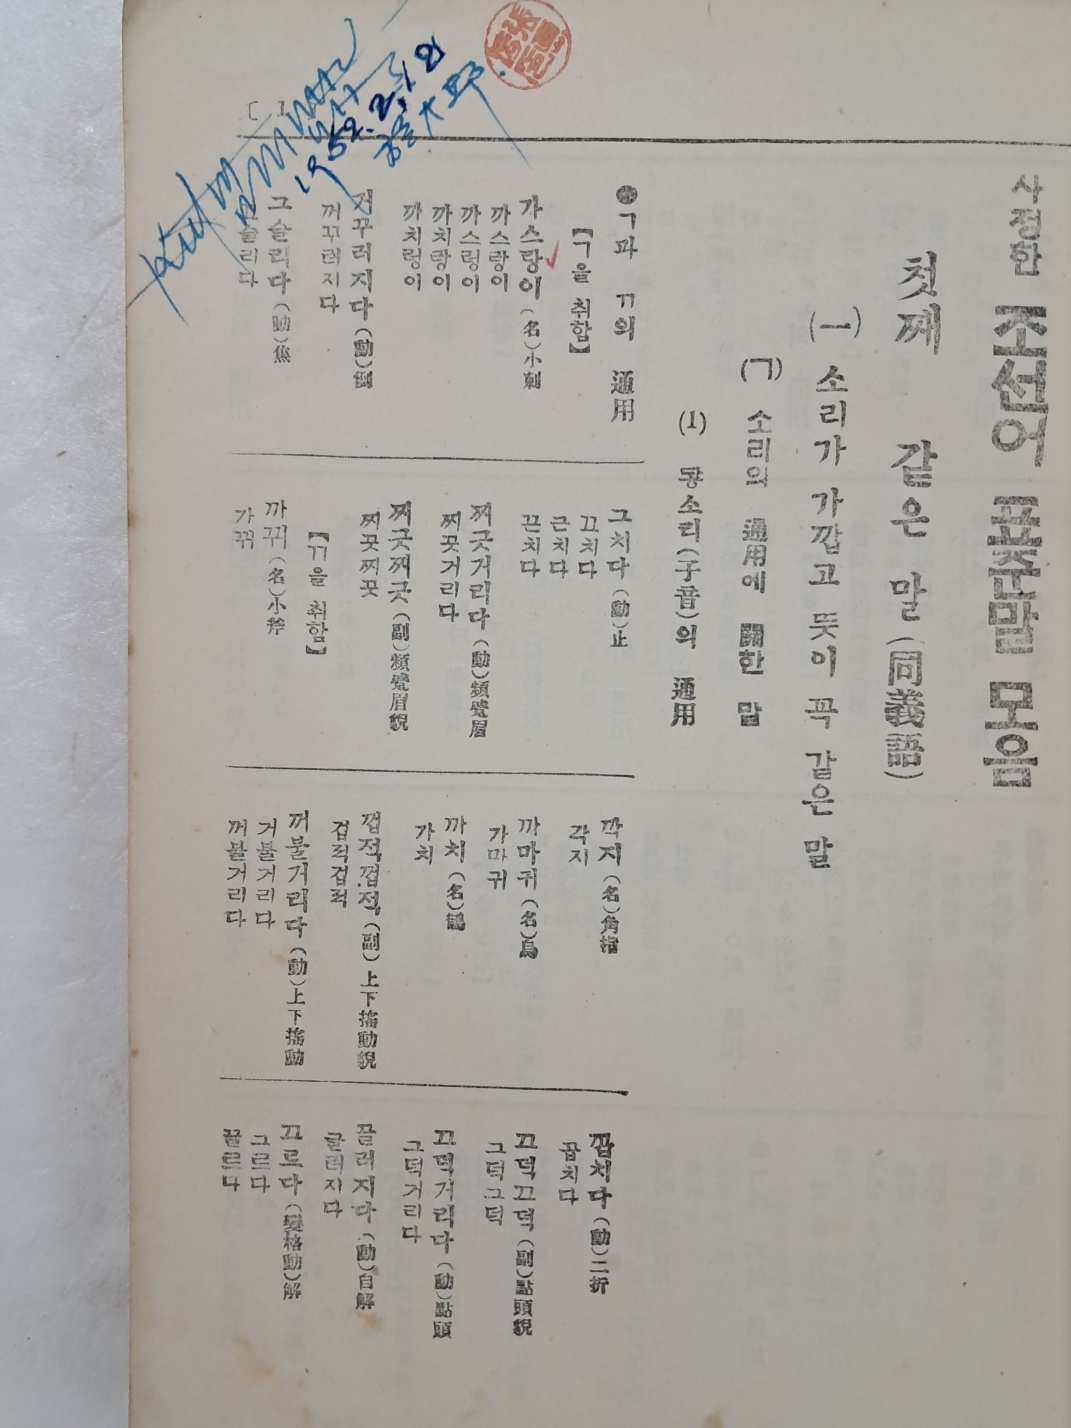 사정한 조선어 표준말 모음
첫째 같은 말(同義語)
(一) 소리가 가깝고 뜻이 꼭 같은 말
(ㄱ) 소리의 通用에 關한 말
(1) 닿소리(子音)의 通用
●ㄱ과 ㄲ의 通用
【ㄱ을 취함】
가스랑이(名)小刺
까스랑이
까스렁이
까치랑이
까치렁이
거꾸러지다(動)倒
꺼꾸러지다
그슬리다(動)焦
끄슬리다
그치다(動)止
끄치다
근치다
끈치다
찌긋거리다(動)頻蹙眉
찌끗거리다
찌긋찌긋(副)頻蹙眉貌
찌끗찌끗
【ㄲ을 취함】
까뀌(名)小斧
가뀌
깍지(名)角指
각지
까마귀(名)烏
가마귀
까치(名)鵲
가치
껍적껍적(副)上下搖動貌
겁적겁적
꺼불거리다(動)上下搖動
거불거리다
꺼블거리다
꼽치다(動)二折
곱치다
끄덕끄덕(副)點頭貌
그덕그덕
끄덕거리다(動)點頭
그덕거리다
끌러지다(動)自解
글러지다
끄르다(變格動)解
그르다
끌르다
[1
1952.2.18